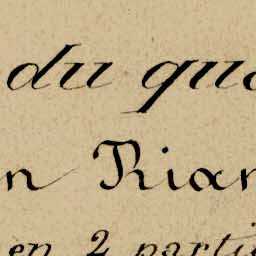 du qua
n Rian
en 2 parti